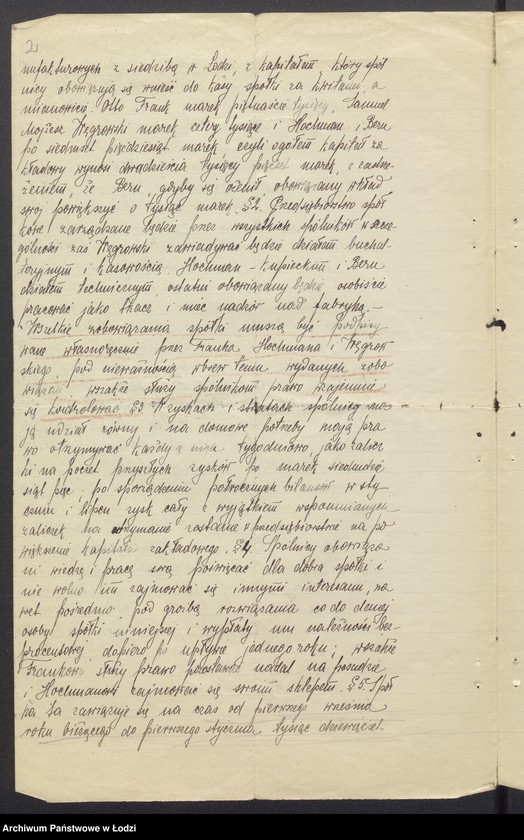 2
nufakturowych z siedzibą w Łodzi, z kapitałem który spól
nicy obowiązują się wnieść do kasy spółki za kwitami, a
mianowicie Otto Frank marek piętnaście tysięcy, Samuel
Mojżesz Węgrowski marek cztery tysiące i Hochman i Beru
po siedmset pięćdziesiąt marek czyli ogółem kapitał za
kładowy wynosi dwadzieścia tysięcy pięćset marek, z zastrze
żeniem, że Beru, gdyby się ożenił, obowiązany wkład
swój powiększyć o tysiąc marek. §2. Przedsiębiorstwo spół
kowe zarządzane będzie przez wszystkich spólników w szcze
gólności zaś Węgrowski zawiadywać będzie działem buchal
teryjnym i kasowością, Hochman - kupieckim i Beru
działem technicznym, ostatni obowiązany będzie osobiście
pracować jako tkacz i mieć nadzór nad fabryką. -
Wszelkie zobowiązania spółki muszą być podpisy
wane własnoręcznie przez Franka, Hochmana i Węgrow
skiego, pod nieważnością wbrew temu wydanych zobo
wiązań, wszakże służy spólnikom prawo wzajemnie
się kontrolować §3 W zyskach i stratach spólnicy ma
ją udział równy i na domowe potrzeby mają pra
wo otrzymywać każdy z nich tygodniowo, jako zalicz
ki na poczet przyszłych zysków po marek siedmdzie
siąt pięć; po sporządzeniu półrocznych bilansów w sty
czniu i lipcu zysk cały z wyjątkiem wspomnianych
zaliczek na utrzymanie zostanie w przedsiębiorstwie na po
większenie kapitału zakładowego. §4 Spólnicy obowiąza
ni wiedzę i pracę swą poświęcać dla dobra spółki i
nie wolno im zajmować się innymi interesami, na
wet pośrednio pod groźbą rozwiązania co do danej
osoby spółki niniejszej i wypłaty mu należności bez
procentowej dopiero po upływie jednego roku; wszakże
Frankowi służy prawo pozostawać nadal na posadzie
i Hochmanowi zajmować się swoim sklepem. §5. Spół
ka ta zawiązuje się na czas od pierwszego września
roku bieżącego do pierwszego stycznia tysiąc dziewięćset
Archiwum Państwowe w Łodzi